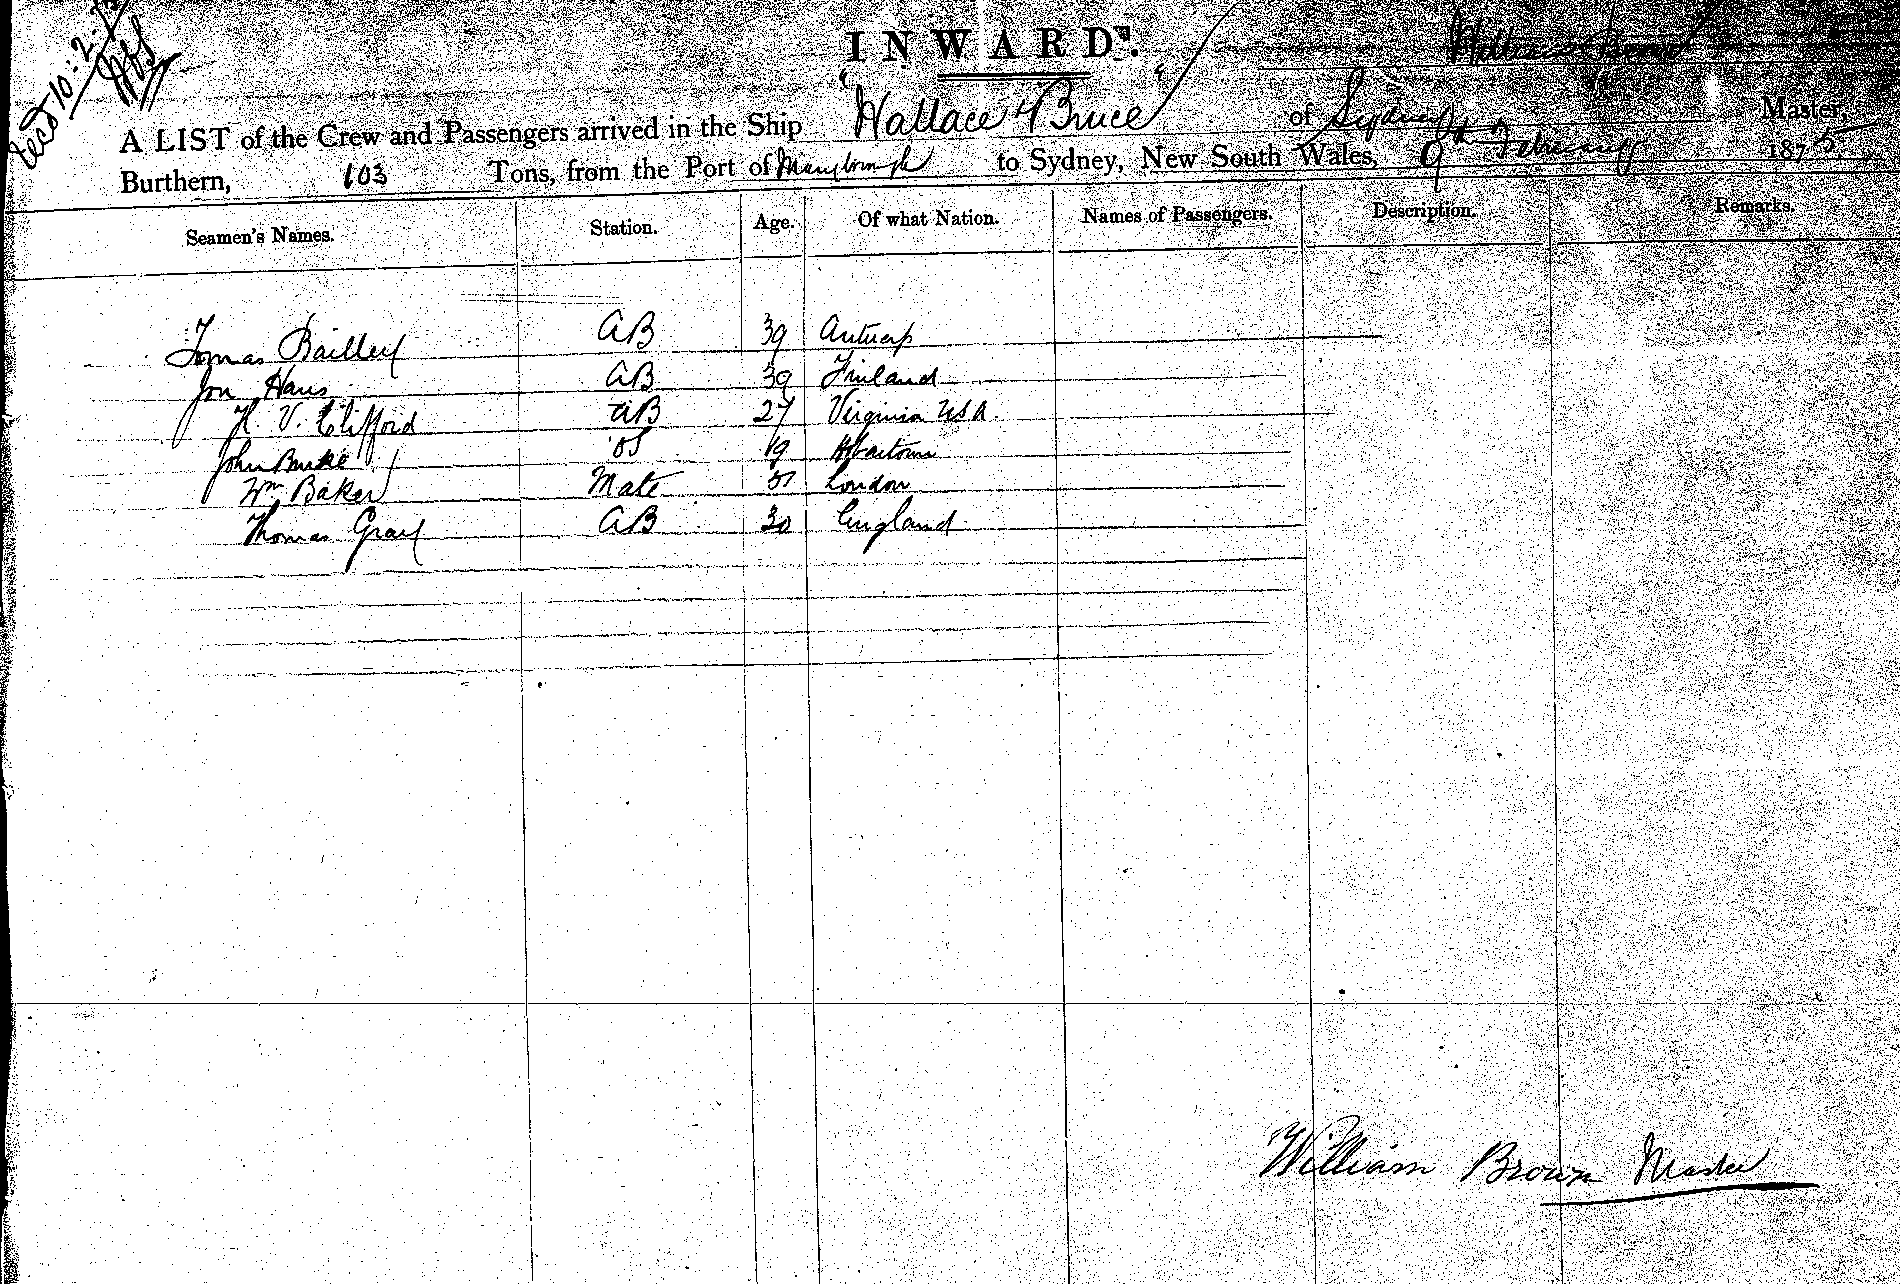 Recd 10.2.75
INWARD.
William Brown
A LIST of the Crew and Passengers arrived in the Ship "Wallace & Bruce" of Sydney Master,
Burthern, 103 Tons, from the Port of Maryborough to Sydney, New South Wales, 9th February 1875.
Seamen's Names. Station. Age. Of what Nation. Names of Passengers. Description. Remarks.
Tomas Bailley AB 39 Antwerp
Jon Hans AB 39 Finland
H. V. Clifford AB 27 Virginia USA.
John Burke OS 19
Wm Baker Mate London
Thomas Gray AB 30 England
William Brown Master